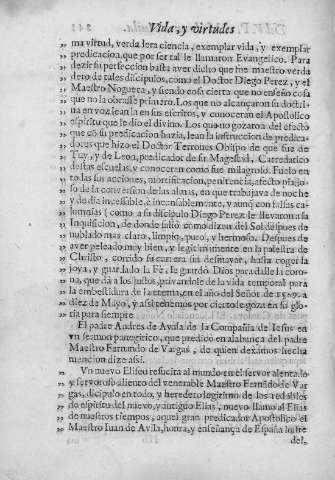 Vida, y virtudes
„ ma virtud, verdadera ciencia, exemplar vida, y exemplar
„ predicacion, que por ser tal le llamaron Evangelico. Para
„ dezir su perfeccion basta aver dicho que fue maestro verda
„ dero de tales discipulos, como el Doctor Diego Perez, y el
„ Maestro Noguera, y siendo cosa cierta que no enseño cosa
„ que no la obrasse primero. Los que no alcançaron su doctri
„ na en voz lean la en sus escritos, y conoceran el Apostolico
„ espiritu que le dio el divino. Los que no gozaron del efecto
„ que cõ su predicacion hazia, lean la instruccion de predica-
„ dores que hizo el Doctor Terrones Obispo de que fue de
„ Tuy, y de Leon, predicador de su Magestad, Catredatico
„ destas escuelas, y conoceran como fue milagroso. Fuelo en
„ todas sus acciones, mortificacion, penitencia, afecto piado-
„ so de la conversion de las almas, en que trabajava de noche
„ y dia incessable, è incansablemente, y aunq̃ con falsas ca-
„ lumnias (como a su discipulo Diego Perez le llevaron a la
„ Inquisicion, de donde salió como dizen del Sol despues de
„ nublado mas claro, limpio, puro, y hermoso. Despues de
„ aver peleado muy bien, y legitimamente en la palestra de
„ Christo, corrido su carrera sin desmayar, hasta coger la
„ joya, y guardado la Fè, le guardò Dios para dalle la coro-
„ na, que dà a los justos, privandole de la vida temporal para
„ la embestidura de la eterna, en el año del Señor de 1569. a
„ diez de Mayo, y assi tenemos por cierto le goza en su glo-
„ ria para siempre.
El padre Andres de Ayala de la Compañia de Iesus en
vn sermon panegirico, que predicó en alabança del padre
Maestro Fernando de Vargas, de quien dexamos hecha
mencion dize assi.
„ Vn nuevo Eliseo resucita al mundo en el fervor alentado
„ y fervoroso aliento del venerable Maestro Fernãdo de Var
„ gas, discipulo en todo, y heredero legitimo de los redobles
„ de espiritu del nuevo, y antiguo Elias, nuevo llamo al Elias
„ de nuestros tiempos, aquel gran predicador Apostolico el
„ Maestro Iuan de Avila, honra, y enseñança de España lustre
del